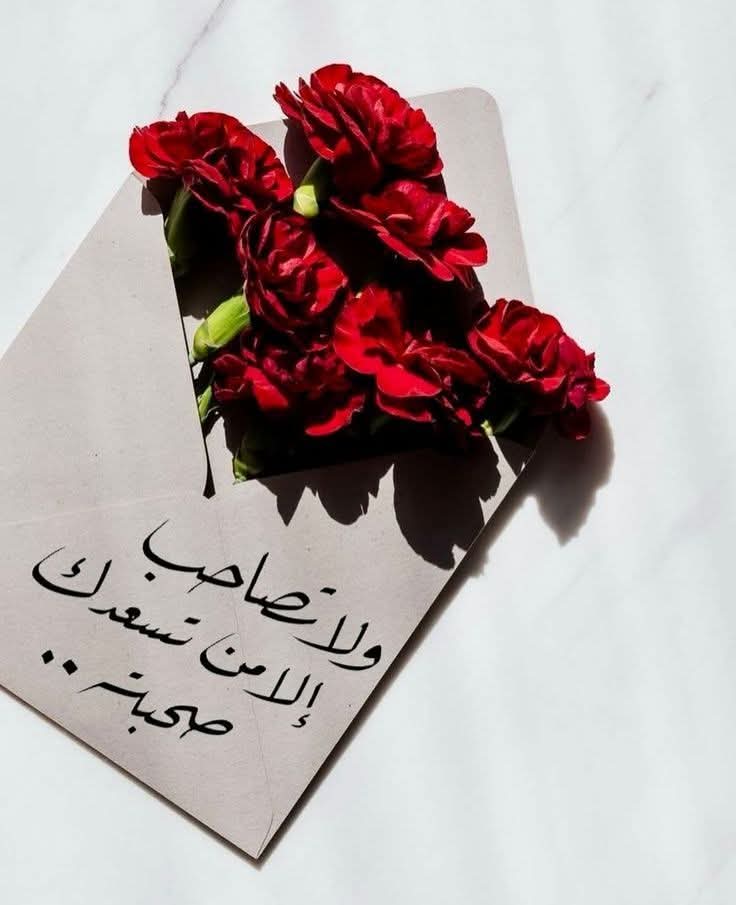 ولا تصاحب
إلا من تسعدك
صحبته ..